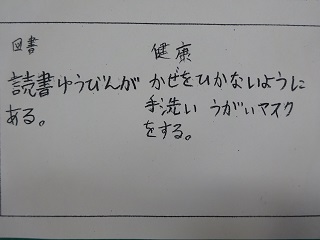 図書
読書ゆうびんが
ある。
健康
かぜをひかないように
手洗い うがいマスク
をする。